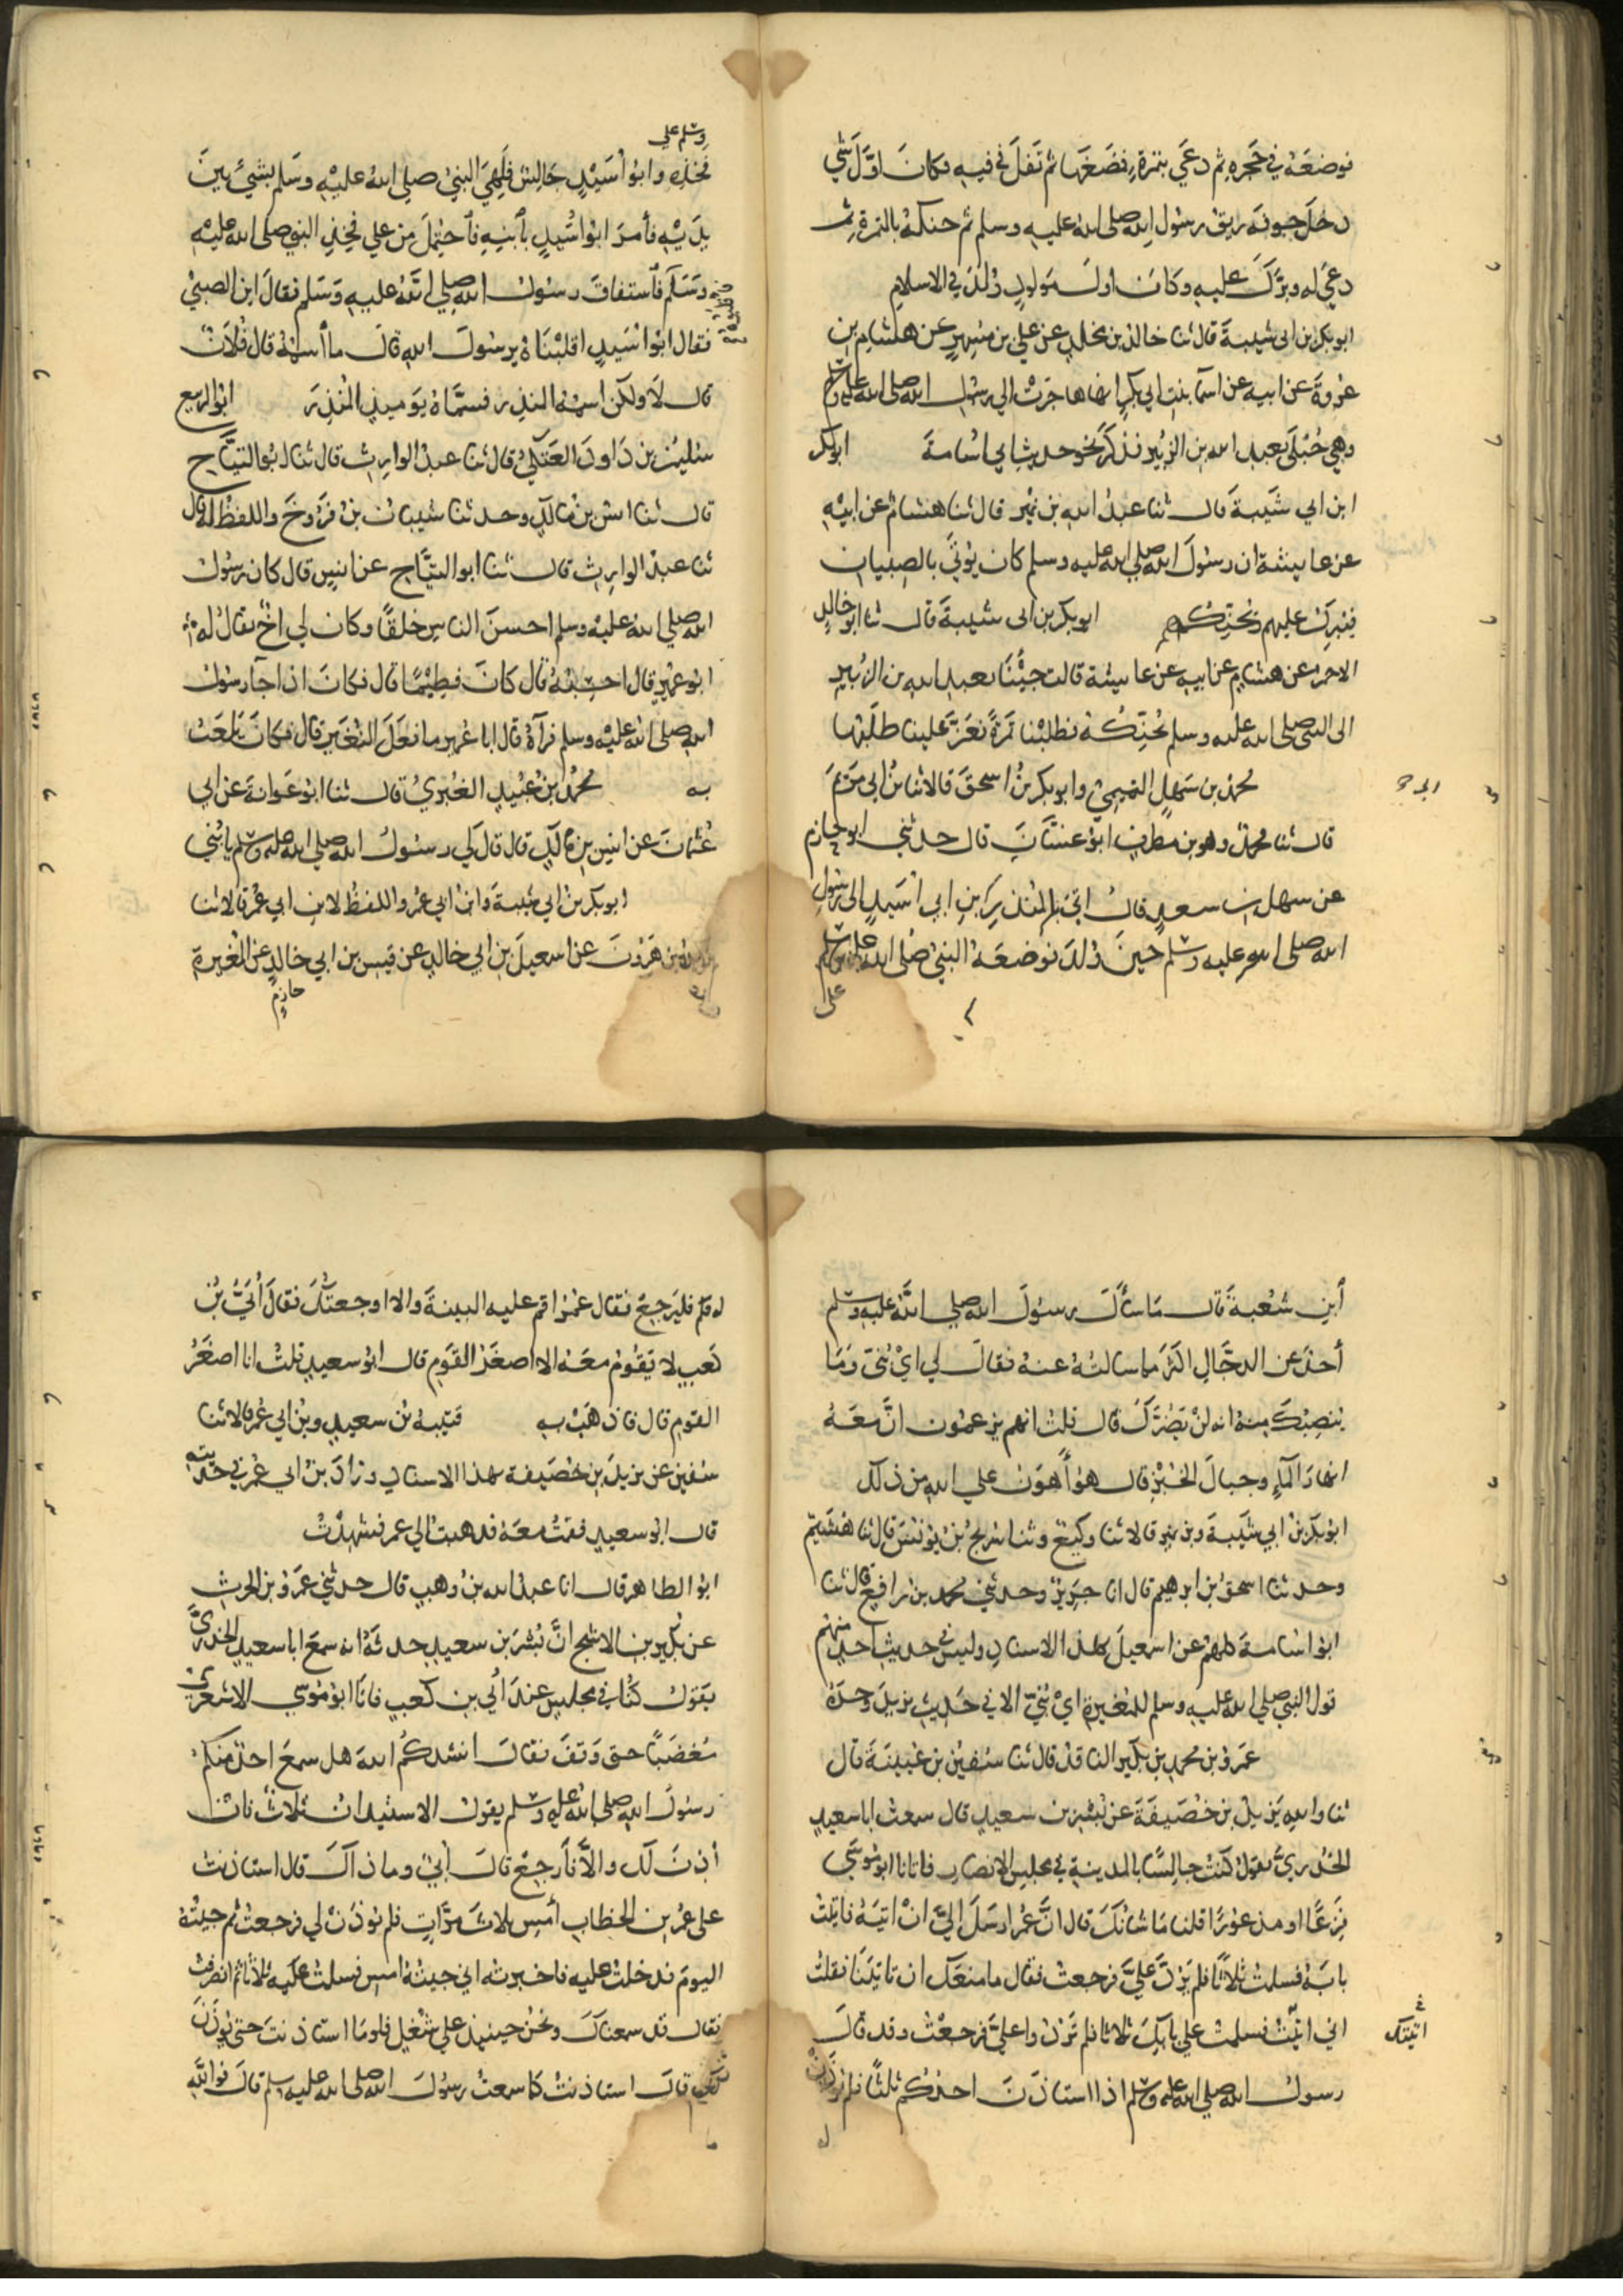 فوضعَهُ في حَجره ثم دعَي بتمرةٍ فمَضَغَها ثم تَفلَ في فيهِ فكانَ اوَّلَ شي
دخلَ جوفَهُ ريق رسُول اللهِ صلى الله عليه وسلم ثم حنكهُ بالتمرة ثم
دعَي له وبرَّكَ عليه وكانَ اولَ مَولودٍ وُلدَ في الاسلامِ
ابو بكر بن ابى شيبة قال ثنا خالد بن مخلدٍ عن علي بن مُسهِرٍ عن هشام بن
عروةَ عن ابيهِ عن اسمآ بنتِ ابي بكرٍ انها هاجَرَتْ الي رسُول الله صلى الله عليه وسلم
وهي حُبْلَى بعبد الله بن الزُّبير فذكرَ نحو حديث ابي اسُامةَ ابوبكر
ابن ابي شَيبةَ قال ثنا عبدُ اللهِ بن نمير قال ثنا هشامٌ عن ابيْهِ
عن عايشة ان رسُولَ اللهِ صلى الله عليه وسلم كان يُوتَي بالصِبيانِ
فيُبرِّكُ عليهم ويُحَنِّكُهم ابوبكر بن ابى شيبةَ قال ثنا ابو خالدٍ
الاحمر عن هشامٍ عن ابيهِ عن عايشة قالت جيْنَا بعبد الله بن الزُبيرِ
الى النبى صلى الله عليه وسلم يُحَنِّكُهُ فطلبْنا تمرَةً فعَزَّ علينا طَلَبُها
محمد بن سَهلٍ التميميُّ وابو بكر بنُ اسحقَ قالا ثنا بنُ ابي مَريَمَ
قال ثنا محمدٌ وهو بن مطرفٍ ابوُ غسَّانَ قال حدثني ابو حازمٍ
عن سهل بن سعدٍ قالَ اُتيَ بالمُنذرِ بنِ ابي اُسَيدٍ الى رسُولِ
الله صلى الله عليه وسلم حينَ وُلدَ فوضعَهُ النبيُ صلى الله عليه وسلم
على
وسلم علي
فَخذِهِ وابُو اُسَيْدٍ جَالِسٌ فَلَهِيَ النبيُ صلى الله عليْهِ وسَلم بشيْءٍ بينَ
يدَيْهِ فأمرَ ابوُ اسُيدٍ بأبنِهِ فأحتُمِلَ من علي فخذِ النبي صلى الله عليْهِ
وَسَلَّم فأستفاقَ رسُولُ اللهِ صلي اللَّهُ عليهِ وَسَلم فقالَ اينَ الصبيُ
فقال ابوُ اسَيدٍ اقلبْنَاهُ يرسُولَ اللهِ قالَ ما أسمُهُ قال فُلانٌ
قال لَا ولكن اسمُهُ المنذر فسمَّاهُ يَوميذٍ المُنْذِرَ ابوُ الربيع
سليمٰنُ بن دَاودَ العَتَكيُّ قال ثنا عبدُ الوارِثِ قال ثنا ابوُ التيَّاحِ
قال ثنا انسُ بنُ مٰالكٍ وحدثنا شيبانُ بنُ فرُّوخَ واللفظُ لهُ قال
ثنا عبدُ الوارِثِ قال ثنا ابو التيَّاحِ عن انسٍ قال كان رسُولُ
الله صلي الله عليْهِ وسلم احسنَ الناسِ خلقًا وكان لي اخٌ يقالُ لهُ
ابوُ عميْرٍ قال احسِبُهُ قال كانَ فطِيْمًا قال فكانَ اذا جآ رسُولُ
اللهِ صلى الله عليْهِ وسلم فرآهُ قال ابا عُميرٍ ما فعَلَ النُّغَيرُ قال فكانَ يلعَبُ
به محمدُ بنُ عُبَيْدٍ الغُبَرِيُّ قال ثنا ابوُ عَوانةَ عن ابي
عُثمٰنَ عن انسِ بن مٰالكٍ قال قالَ لي رسُولُ اللهِ صلى الله عليه وسلم يا بُنَيَّ
ابو بكر بنُ ابي شيبةَ وابنُ ابي عمُرَ واللفظُ لابنِ ابي عمُرَ قالا ثنا
يزيد بن هَرُونَ عن اسمعيلَ بن ابي خالدٍ عن قيسِ بن ابي خالدٍ عن المغيرةِ
حازم
أبن شعْبةَ قال مَا سأَلَ رسُولَ اللهِ صلي اللَّهُ عليه وسلم
أحدٌ عن الدجَّالِ اكثرَ مما سالتُهُ عنهُ فقالَ لي ايْ بُنَيَّ ومَا
يُنصِبُكَ مِنهُ انه لنْ يَضُرَّكَ قال قلتُ انهم يزعمُون انَّ معَهُ
انهارَ المآءِ وجبالَ الخُبْزِ قال هُو أَهوَنُ علي اللهِ من ذلك
ابو بكر بنُ ابي شيَبةَ وبن نميرٍ قالا ثنا وكيعٌ وثنا سُريجُ بنُ يُونسَ قال ثنا هُشَيمٌ
وحدثنا اسحٰقُ بن ابرهيم قال انا جَرِيرٌ وحدثني محمد بن رافعٍ قال ثنا
ابوُ اسُامةَ كلهمُ عن اسمعيلَ بهذا الاسنادِ وليسَ في حديثِ احدٍ منهمُ
قول النبي صلي الله عليهِ وسلم للمُغيرةِ ايْ بُنَيَّ الا في حَديثِ يزيدَ وحدَهُ
عمَرُو بن محمدِ بن بكيرٍ الناقدُ قال ثنا سُفيٰنُ بن عُيَيْنَةَ قال
ثنا واللهِ يَزيدُ بن خُصَيفَةَ عن بُسْرِ بن سعيدٍ قال سمعتُ ابا سعيدٍ
الخُدريَّ يقولُ كنتُ جالِسًا بالمدينةِ في مجلسِ الانصارِ فاتانا ابوُ مُوسَي
فزِعًا او مذعوُرًا قلنا مَا شانُكَ قال انَّ عمُرَ ارسَلَ اليَّ انْ اتيَهُ فاتيتُ
بابَهُ فسلمتُ ثلاثًا فلم يَرُدَّ عليَّ فرجعتُ فقال ما منعَكَ ان تاتِيَنَا فقلتُ
اني اتيتُ فسلمتُ علي بابكَ ثلاثا فلم تَردُوا عليَّ فرجعْتُ وقد قالَ
اتيتك
رسولُ اللهِ صلي الله عليه وسلم اذا استاذنَ احدُكم ثلثًا فلم يُؤذَنْ
له
له فلْيَرجِعْ فقال عمُرُ اقم عليه البينةَ والا اوجعتُكَ فقالَ اُبيُّ بنُ
كعبٍ لا يقُومُ معَهُ الا اصغَرُ القَومِ قال ابوُ سعيدٍ قلتُ انا اصغَرُ
القومِ قال فاذهَبْ بهِ قتيبةُ بنُ سعيدٍ وبنُ ابي عمُرَ قالا ثنا
سفيٰنُ عن يزيدَ بن خُصَيفةَ بهذا الاسنادِ وزادَ بنُ ابي عُمرَ في حديثه
قال ابوُ سعيدٍ فقمتُ معَهُ فذهبتُ الي عمر فشهِدْتُ
ابوُ الطاهر قال انا عبدُ الله بنُ وهبٍ قال حدثني عمَروُ بن الحرثِ
عن بكير بن الاشج انَّ بُسْرَ بن سعيدٍ حدثَهُ انه سمعَ ابا سعيدٍ الخدريَّ
يقولُ كُنَّا في مجلسٍ عندَ أُبي بن كعبٍ فاتَا ابوُ مُوسي الاشعريُّ
مُغضَبًا حتى وَقفَ فقالَ انشدكُم اللهَ هل سمعَ احدٌ منكم
رسوُلَ اللهِ صلي الله عليه وسلم يقولُ الاستيذانُ ثلاثٌ فانْ
أذنَ لك والَّا فارجعْ قالَ أُبيٌّ وما ذاكَ قال استاذنتُ
على عمُر بن الخطابِ أمسِ ثلاثَ مرَّاتٍ فلم يُوذَنْ لي فرجعتُ ثم جيتُهُ
اليومَ فدخلتُ عليه فاخبرتهُ اني جيتُهُ امسِ فسلمتُ عليه ثلاثًا ثم انصرفتُ
فقال قد سمعناكَ ونحنُ حينيذٍ علي شُغُلٍ فلو مَا استاذنتَ حتى يُؤذَنَ
لكَ قالَ استاذنتُ كما سمعتُ رسُولَ الله صلي الله عليه وسلم قالَ فواللهِ